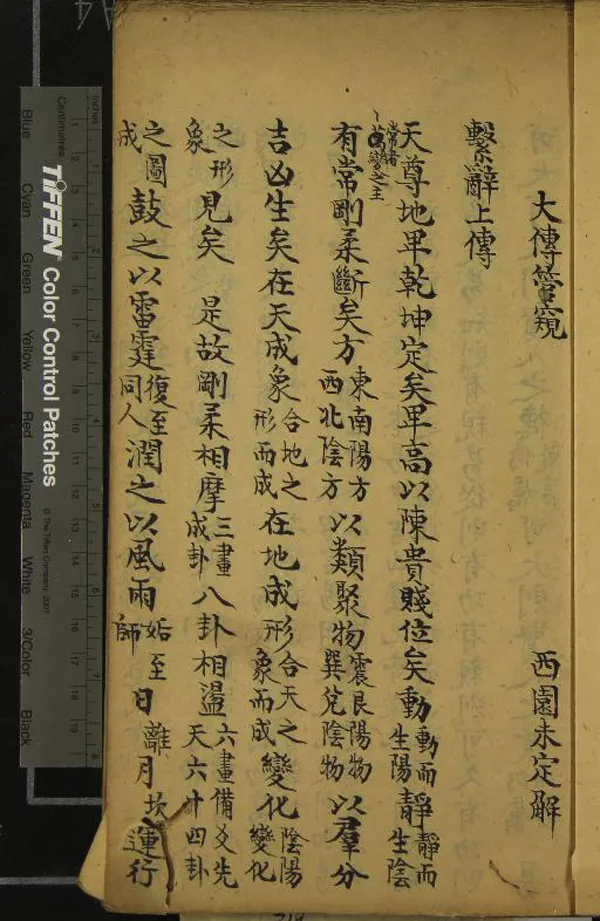 大傳管窺　西園未定解
繫辭上傳
天尊地卑乾坤定矣卑高以陳貴賤位矣動動而生陽靜靜而生陰
常者萬變之主
有常剛柔斷矣方東南陽方西北陰方以類聚物震艮陽物巽兌陰物以羣分
吉凶生矣在天成象合地之形而成在地成形合天之象而成變化陰陽變化
之形象見矣　是故剛柔相摩三畫成卦八卦相盪六畫備爻先天六十四卦
之圖成鼓之以雷霆復至同人潤之以風雨姤至師日離月坎運行
Inches
Centimetres
TIFFEN Color Control Patches
© The Tiffen Company, 2007
Blue
Cyan
Green
Yellow
Red
Magenta
White
3/Color
Black